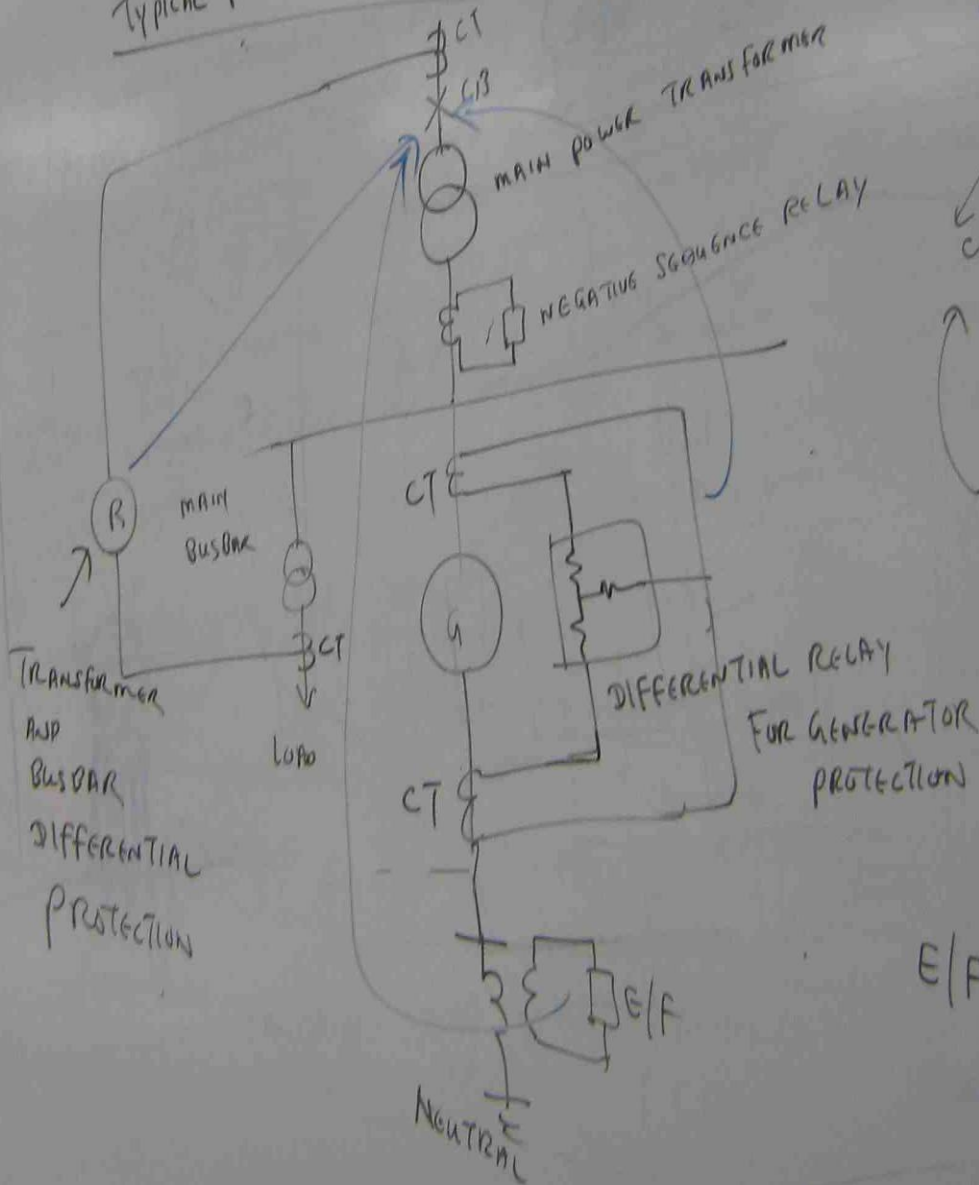 TYPICAL
CT
CB
MAIN POWER TRANSFORMER
NEGATIVE SEQUENCE RELAY
CT
R
MAIN
BUSBAR
G
CT
TRANSFORMER
AND
BUSBAR
DIFFERENTIAL
PROTECTION
LOAD
DIFFERENTIAL RELAY
FOR GENERATOR
PROTECTION
CT
E/F
E/F
NEUTRAL
C